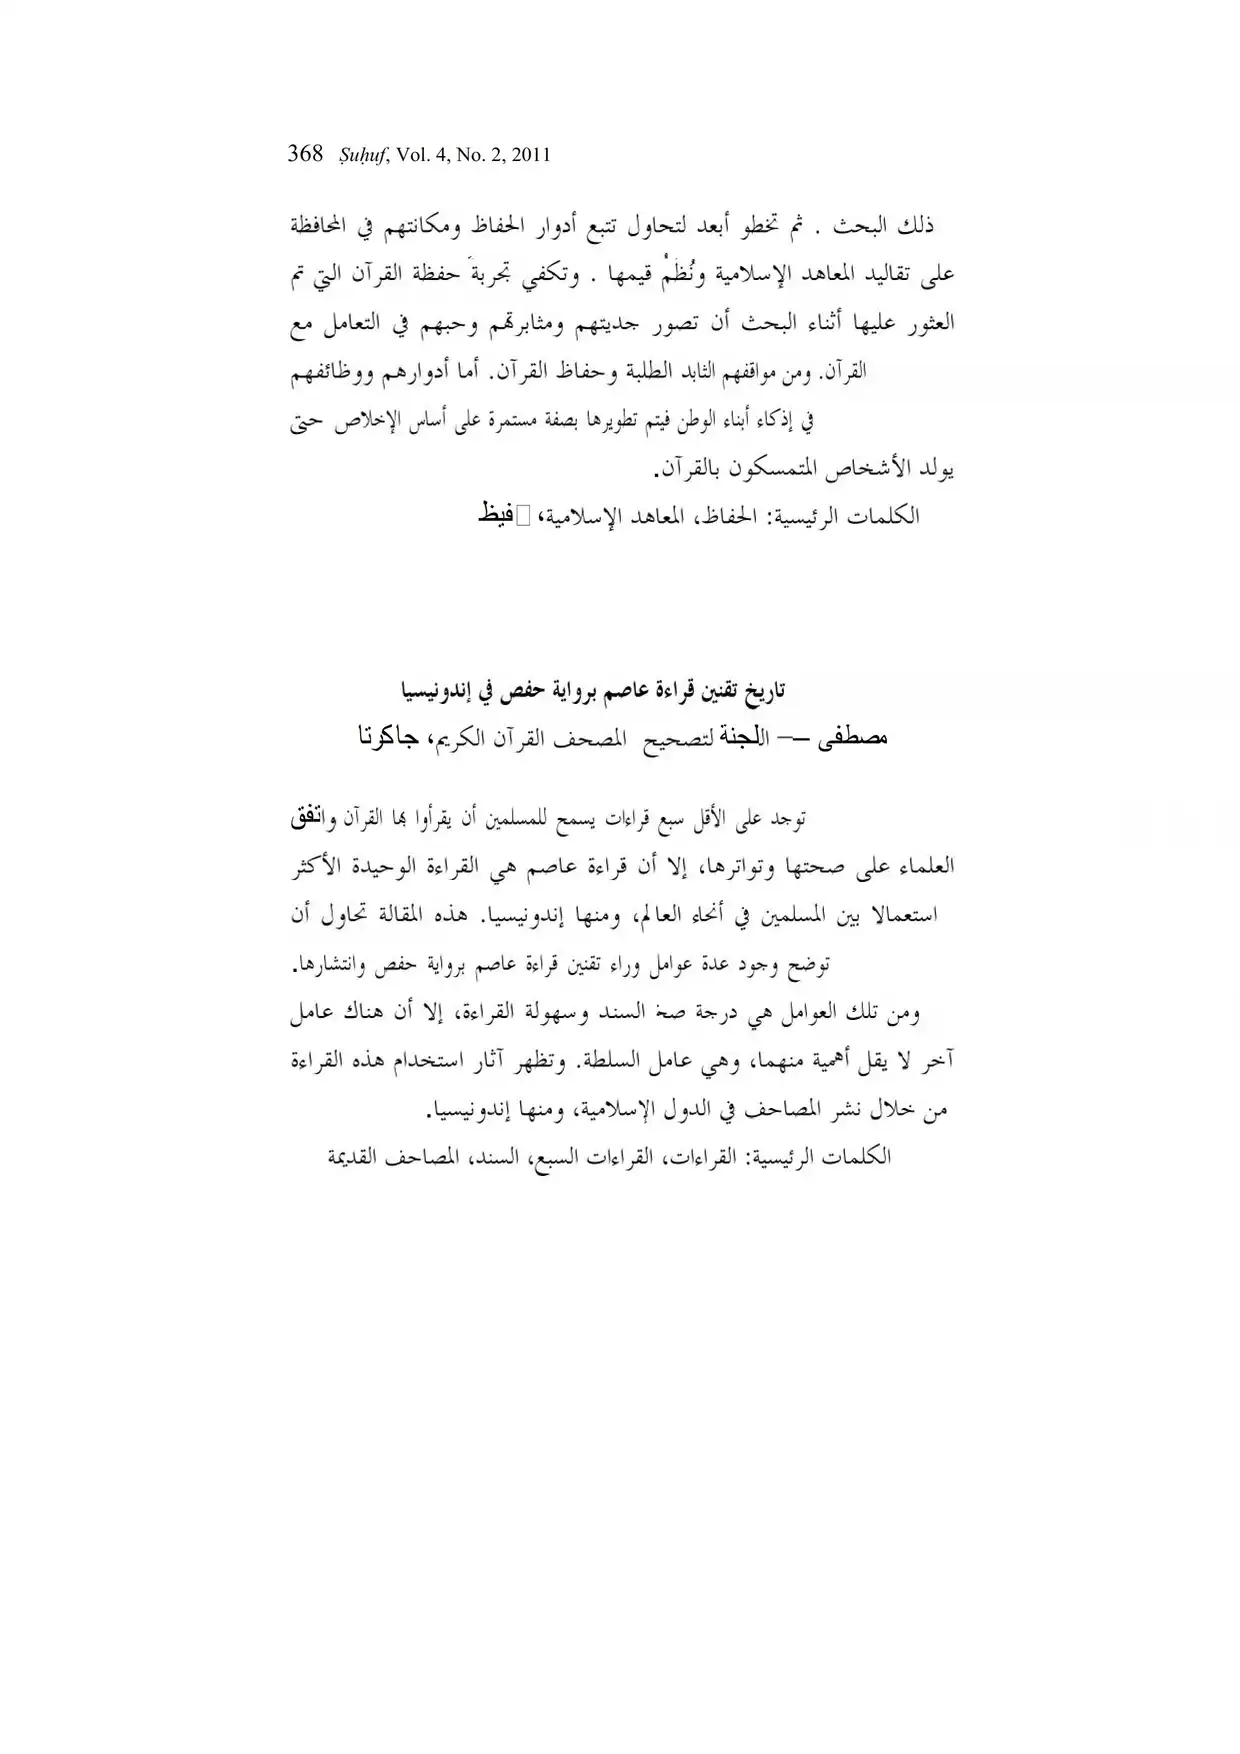 368 Ṣuḥuf, Vol. 4, No. 2, 2011
ذلك البحث . ثم تخطو أبعد لتحاول تتبع أدوار الحفاظ ومكانتهم في المحافظة
على تقاليد المعاهد الإسلامية ونُظُمْ قيمها . وتكفي تجربةَ حفظة القرآن التي تم
العثور عليها أثناء البحث أن تصور جديتهم ومثابرتهم وحبهم في التعامل مع
القرآن. ومن مواقفهم الثابد الطلبة وحفاظ القرآن. أما أدوارهم ووظائفهم
في إذكاء أبناء الوطن فيتم تطويرها بصفة مستمرة على أساس الإخلاص حتى
يولد الأشخاص المتمسكون بالقرآن.
الكلمات الرئيسية: الحفاظ، المعاهد الإسلامية، فيظ
تاريخ تقنين قراءة عاصم برواية حفص في إندونيسيا
مصطفى — اللجنة لتصحيح المصحف القرآن الكريم، جاكرتا
توجد على الأقل سبع قراءات يسمح للمسلمين أن يقرأوا بها القرآن واتفق
العلماء على صحتها وتواترها، إلا أن قراءة عاصم هي القراءة الوحيدة الأكثر
استعمالا بين المسلمين في أنحاء العالم، ومنها إندونيسيا. هذه المقالة تحاول أن
توضح وجود عدة عوامل وراء تقنين قراءة عاصم برواية حفص وانتشارها.
ومن تلك العوامل هي درجة السند وسهولة القراءة، إلا أن هناك عامل
آخر لا يقل أهمية منهما، وهي عامل السلطة. وتظهر آثار استخدام هذه القراءة
من خلال نشر المصاحف في الدول الإسلامية، ومنها إندونيسيا.
الكلمات الرئيسية: القراءات، القراءات السبع، السند، المصاحف القديمة